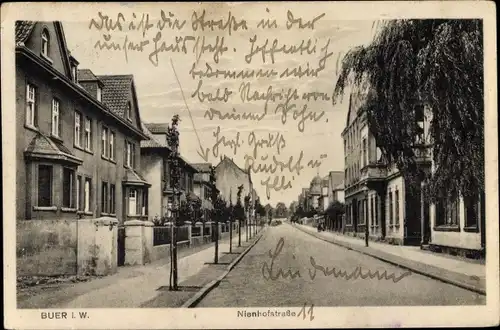 Das ist die Straße in der
unser Haus steht. Hoffentlich
bekommen wir
bald Nachricht von
deinem Sohn.
Herzl. Gruß
Rudolf u
Elli
Lindermann
BUER I. W.
Nienhofstraße 11